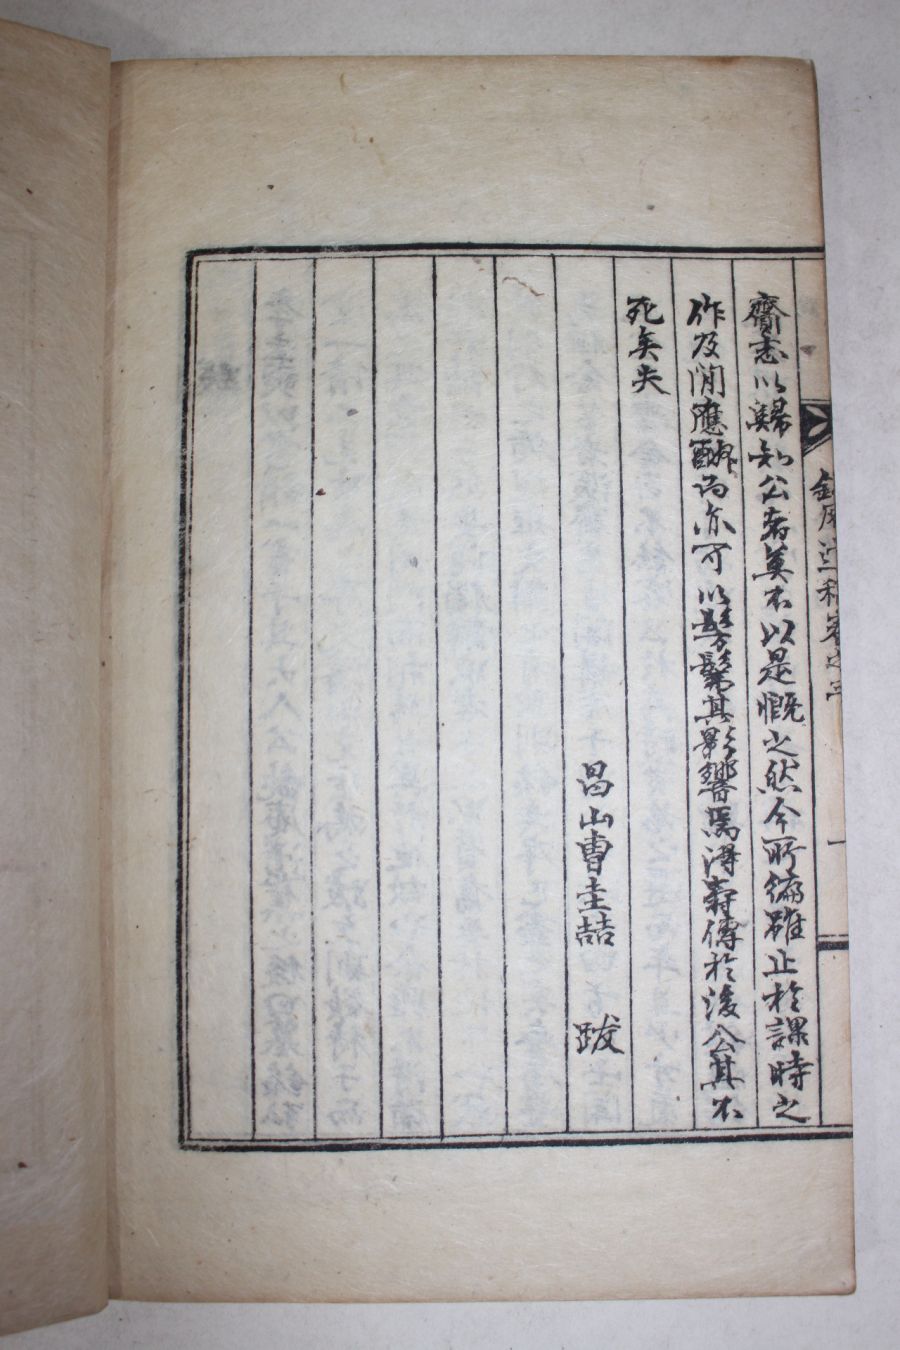 齎志以歸知公者莫不以是慨之然今所編雖止於課時之
作及閒應酬尚亦可以髣髴其影響焉得壽傳於後公其不
死矣夫
昌山曺圭喆 跋
遺稿卷之三